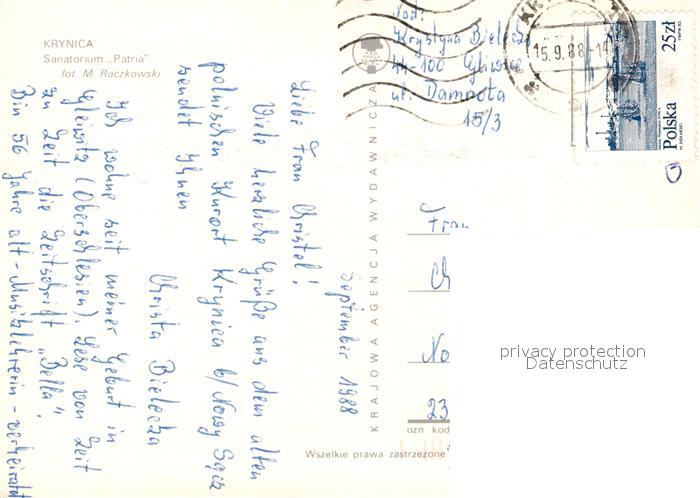 KRYNICA
Sanatorium „Patria"
fot M. Raczkowski
September 1988
Liebe Frau Christel!
Viele herzliche Grüße aus dem alten
polnischen Kurort Krynica b/Nowy Sącz
sendet Ihnen
Christa Bielecza
Ich wohne seit meiner Geburt in
Gleiwitz (Oberschlesien). Lese von Zeit
zu Zeit die Zeitschrift „Bella".
Bin 56 Jahre alt - Musiklehrerin - verheiratet
KRAJOWA AGENCJA WYDAWNICZA
Nad:
Krystyna
44-100 Gliwice
ul.
15/3
15.9.88-14
Polska 25zł
Frau
Ch
No
23
ozn. kod
Wszelkie prawa zastrzeżone
privacy protection
Datenschutz